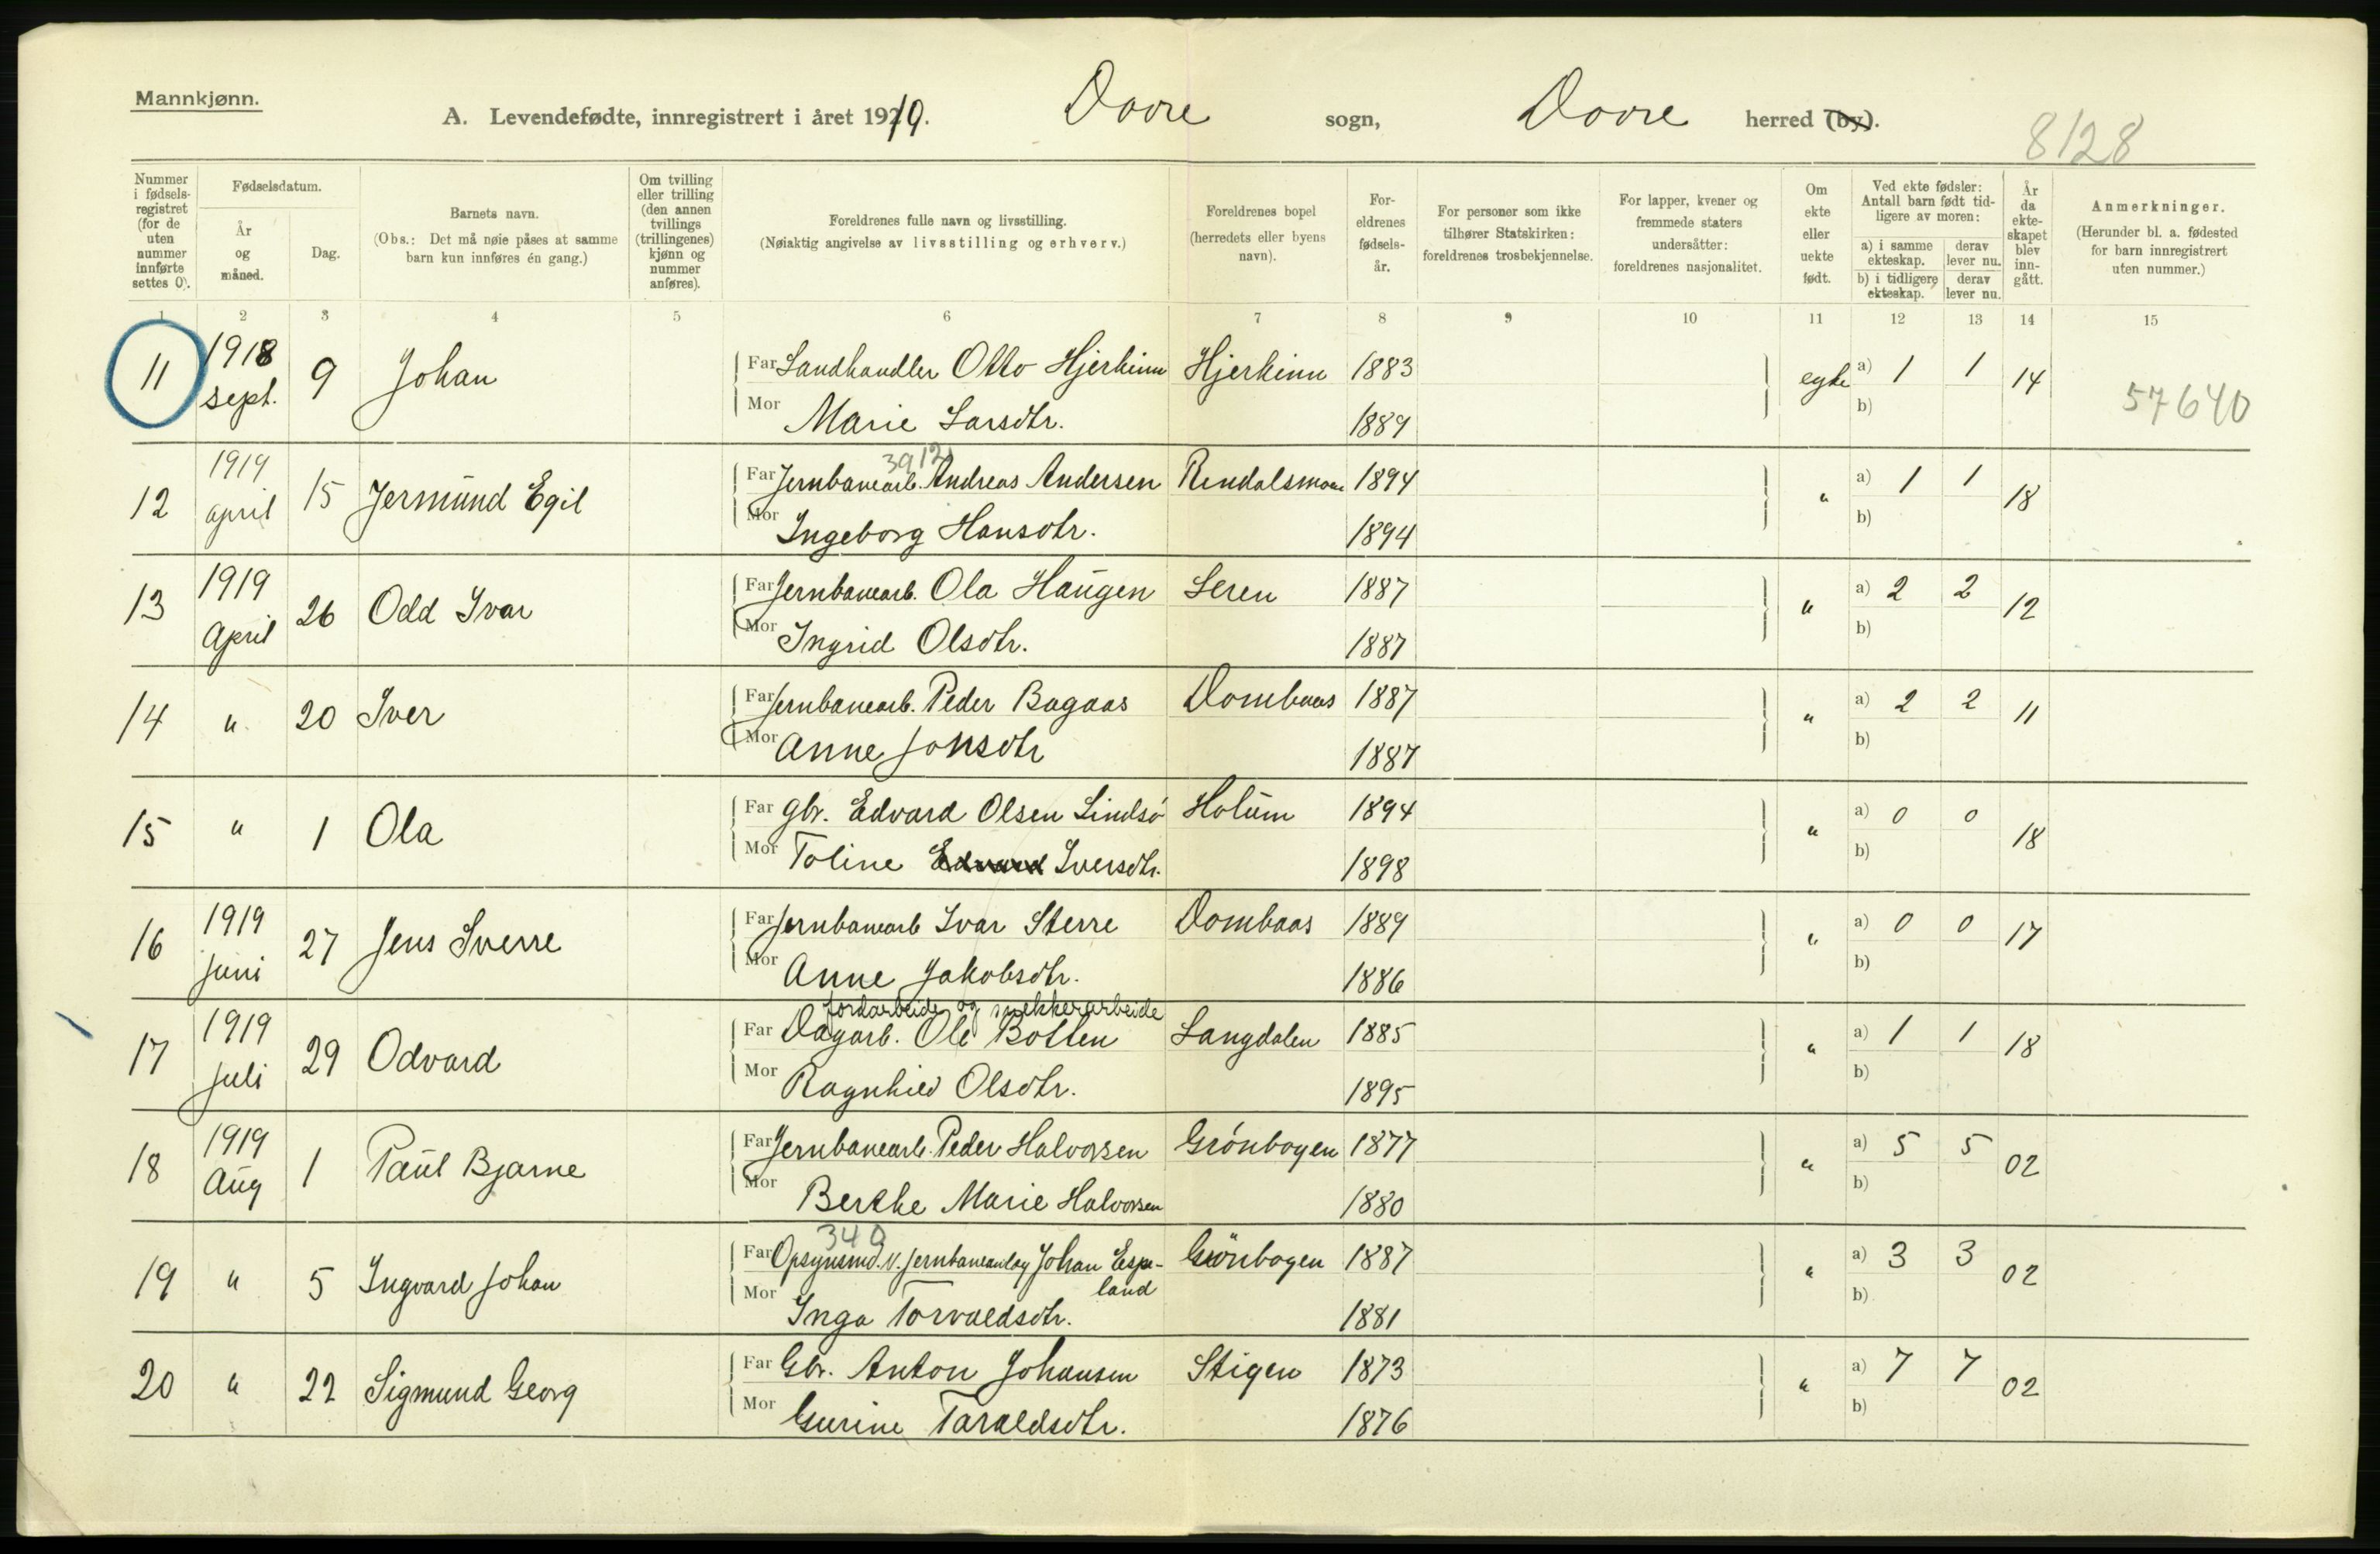 Mannkjønn.
A. Levendefødte, innregistrert i året 1919. Dovre sogn, Dovre herred (by).
8128
Nummer i fødsels-registret (for de uten nummer innførte settes 0).
Fødselsdatum.
År og måned.
Dag.
Barnets navn.
(Obs.: Det må nøie påses at samme barn kun innføres én gang.)
Om tvilling eller trilling (den annen tvillings (trillingenes) kjønn og nummer anføres).
Foreldrenes fulle navn og livsstilling.
(Nøiaktig angivelse av livsstilling og erhverv.)
Foreldrenes bopel (herredets eller byens navn).
For-eldrenes fødsels-år.
For personer som ikke tilhører Statskirken: foreldrenes trosbekjennelse.
For lapper, kvener og fremmede staters undersåtter: foreldrenes nasjonalitet.
Om ekte eller uekte født.
Ved ekte fødsler: Antall barn født tid-ligere av moren:
a) i samme ekteskap. derav lever nu.
b) i tidligere ekteskap. derav lever nu.
År da ekte-skapet blev inn-gått.
Anmerkninger.
(Herunder bl. a. fødested for barn innregistrert uten nummer.)
1 2 3 4 5 6 7 8 9 10 11 12 13 14 15
11 1918 sept. 9 Johan Far Landhandler Otto Hjerkinn Hjerkinn 1883 egte a) 1 1 14 57640
Mor Marie Larsdtr. 1889 b)
3912
12 1919 april 15 Jermund Egil Far Jernbanearb. Andreas Andersen Rendalsmoen 1894 " a) 1 1 18
Mor Ingeborg Hansdtr. 1894 b)
13 1919 April 26 Odd Ivar Far Jernbanearb. Ola Haugen Leren 1887 " a) 2 2 12
Mor Ingrid Olsdtr. 1887 b)
14 " 20 Iver Far Jernbanearb. Peder Bagaas Dombaas 1887 " a) 2 2 11
Mor Anne Jonsdtr 1887 b)
15 " 1 Ola Far gbr. Edvard Olsen Lindsö Holum 1894 " a) 0 0 18
Mor Toline Edvard Iversdtr. 1898 b)
16 1919 juni 27 Jens Sverre Far Jernbanearb Ivar Sterre Dombaas 1889 " a) 0 0 17
Mor Anne Jakobsdtr. 1886 b)
jordarbeide og snekkerarbeide
17 1919 juli 29 Odvard Far Dagarb. Ole Botten Langdalen 1885 " a) 1 1 18
Mor Ragnhild Olsdtr. 1895 b)
18 1919 Aug 1 Paul Bjarne Far Jernbanearb. Peder Halvorsen Grönbogen 1877 " a) 5 5 02
Mor Berthe Marie Halvorsen 1880 b)
340
19 " 5 Ingvard Johan Far Opsynsmd. v. jernbaneanlæg Johan Espe- Grönbogen 1887 " a) 3 3 02
land
Mor Inga Torvaldsdtr. 1881 b)
20 " 22 Sigmund Georg Far Gbr. Anton Johansen Stigen 1873 " a) 7 7 02
Mor Gurine Taraldsdtr. 1876 b)